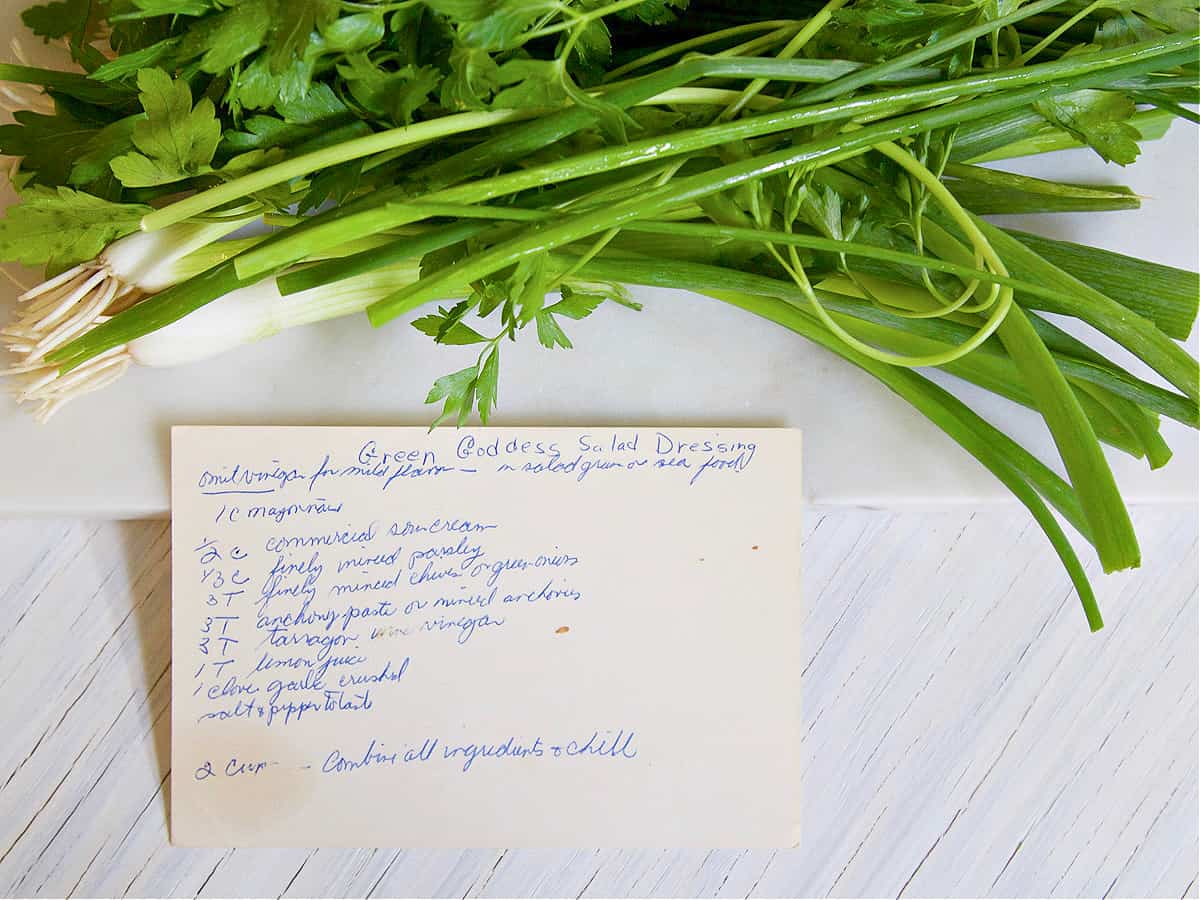 Green Goddess Salad Dressing
omit vinegar for mild flavor — on salad green or sea food
1 c mayonnaise
1/2 c commercial sour cream
1/3 c finely minced parsley
3 T finely minced chives or green onions
3 T anchovy paste or minced anchovies
3 T tarragon wine vinegar
1 T lemon juice
1 clove garlic crushed
salt & pepper to taste
2 cup - Combine all ingredients & chill